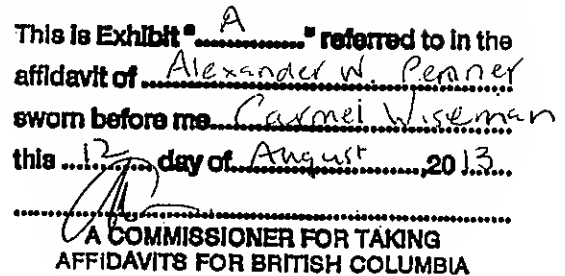 This is Exhibit "......A......" referred to in the
affidavit of Alexander W. Penner
sworn before me Carmel Wiseman
this 12 day of August, 2013
A COMMISSIONER FOR TAKING
AFFIDAVITS FOR BRITISH COLUMBIA